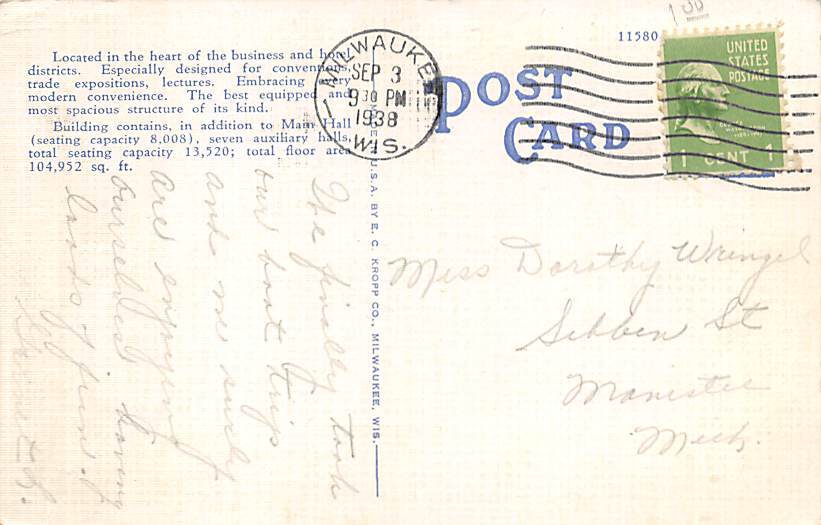 11580
Located in the heart of the business and hotel
districts. Especially designed for conventions,
trade expositions, lectures. Embracing every
modern convenience. The best equipped and
most spacious structure of its kind.
Building contains, in addition to Main Hall
(seating capacity 8,008), seven auxiliary halls,
total seating capacity 13,520; total floor area
104,952 sq. ft.
MILWAUKEE
SEP 3
9 30 PM
1938
WIS.
POST
CARD
UNITED
STATES
POSTAGE
1 CENT 1
U.S.A. BY E. C. KROPP CO., MILWAUKEE, WIS.
We finally took
our boat trip
and we surely
are enjoying
ourselves having
loads of fun.
Miss Dorothy Wringel
Sibben St
Manistee
Mich.